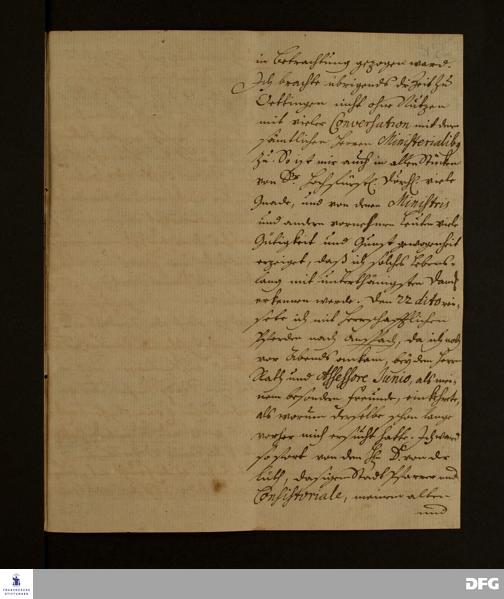 in Betrachtung gezogen ward.
Ich brachte übrigends die Zeit zu
Oettingen nicht ohne Nutzen
mit vieler Conversation mit denen
sämtlichen Herren Ministerialibg
zu. So ist mir auch in allen Stücken
von Sr. Hochfürstl. Dörchl. viele
Gnade, und von denen Ministris
und andern vornehmen Leuten viele
Gütigkeit und Gunst gewogenheit
erzeiget, daß ich solches Lebens-
lang mit unterthänigsten Danck
erkennen werde. Den 22 dito rei-
sete ich mit Herrschafftlichen
Pferden nach Anspach, da ich noch
vor Abends ankam, bey dem Herrn
Rath und Assessore Junio, als mei-
nem besondern Freunde, einkehrte,
als warum derselbe schon lange
vorher mich ersucht hatte. Ich ward
so fort von dem Hn D. von der
Lith, dasigen Stadt Pfarrer und
Consistoriale, meinem alten
und
FRANCKESCHE
STIFTUNGEN
DFG